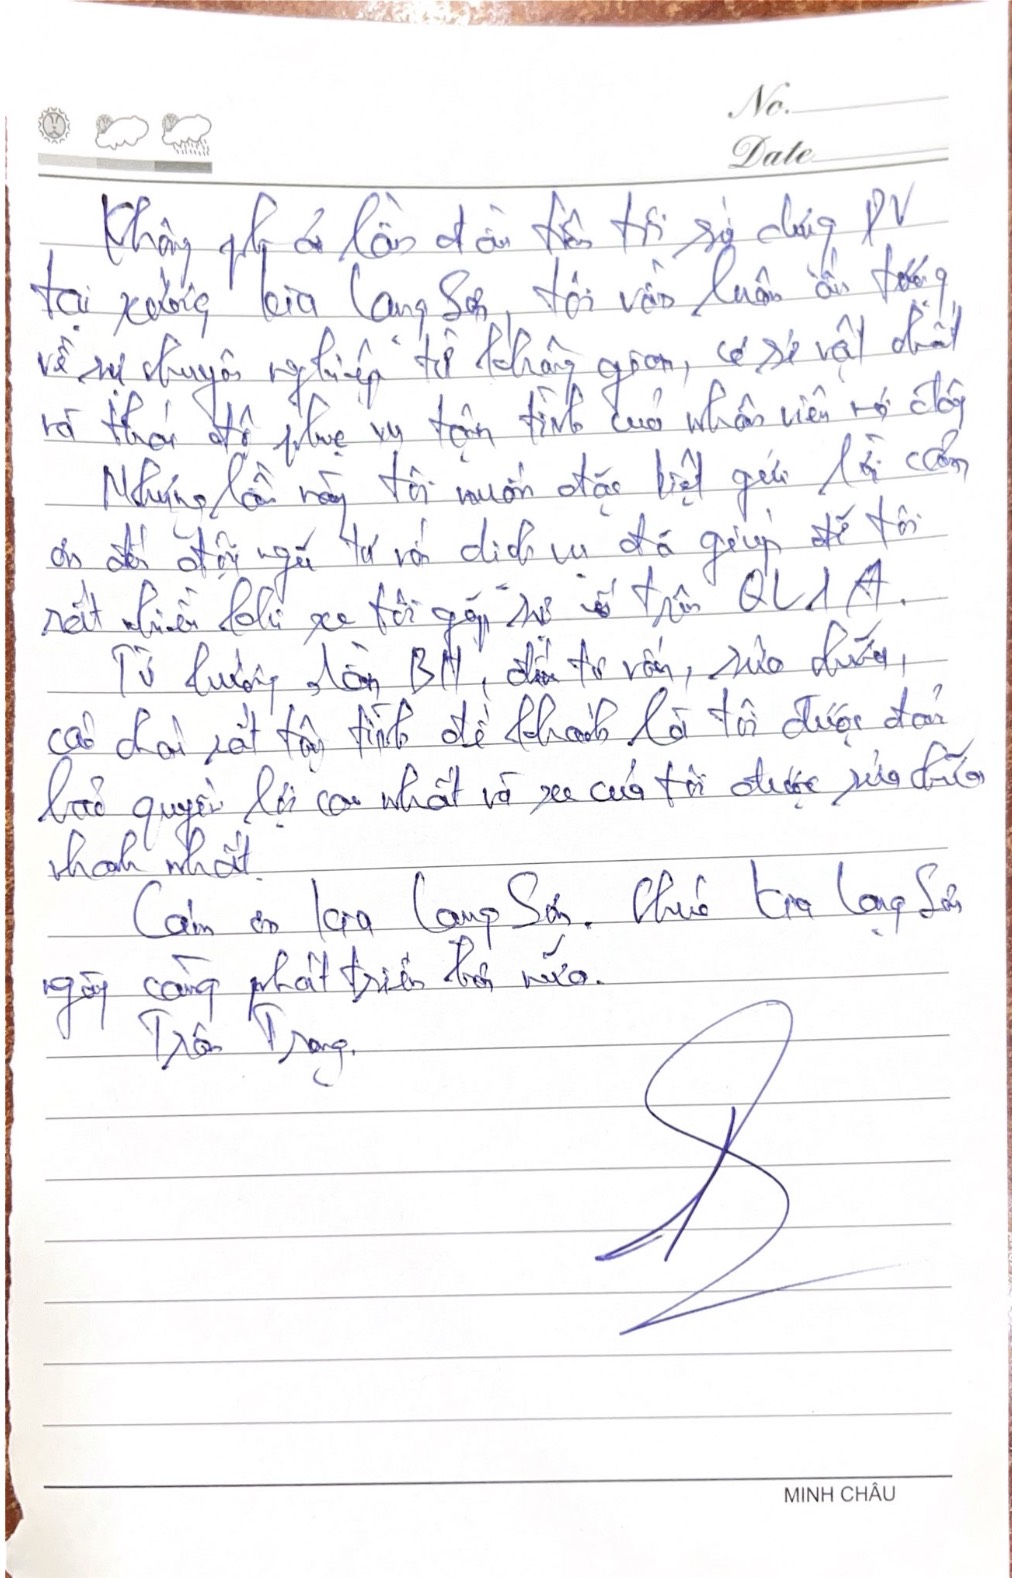 No.
Date
Không phải lần đầu tiên tôi sử dụng DV
tại xưởng kia Lạng Sơn, tôi vẫn luôn ấn tượng
về sự chuyên nghiệp từ không gian, cơ sở vật chất
và thái độ phục vụ tận tình của nhân viên ở đây
Nhưng lần này tôi muốn đặc biệt gửi lời cảm
ơn đến đội ngũ tư vấn dịch vụ đã giúp đỡ tôi
rất nhiều khi xe tôi gặp sự cố trên QL1A.
Từ hướng dẫn BH, đến tư vấn, sửa chữa,
các bạn rất tận tình để khách là tôi được đảm
bảo quyền lợi cao nhất và xe của tôi được sửa chữa
nhanh nhất.
Cảm ơn kia Lạng Sơn. Chúc kia Lạng Sơn
ngày càng phát triển hơn nữa.
Trân Trọng.
MINH CHÂU